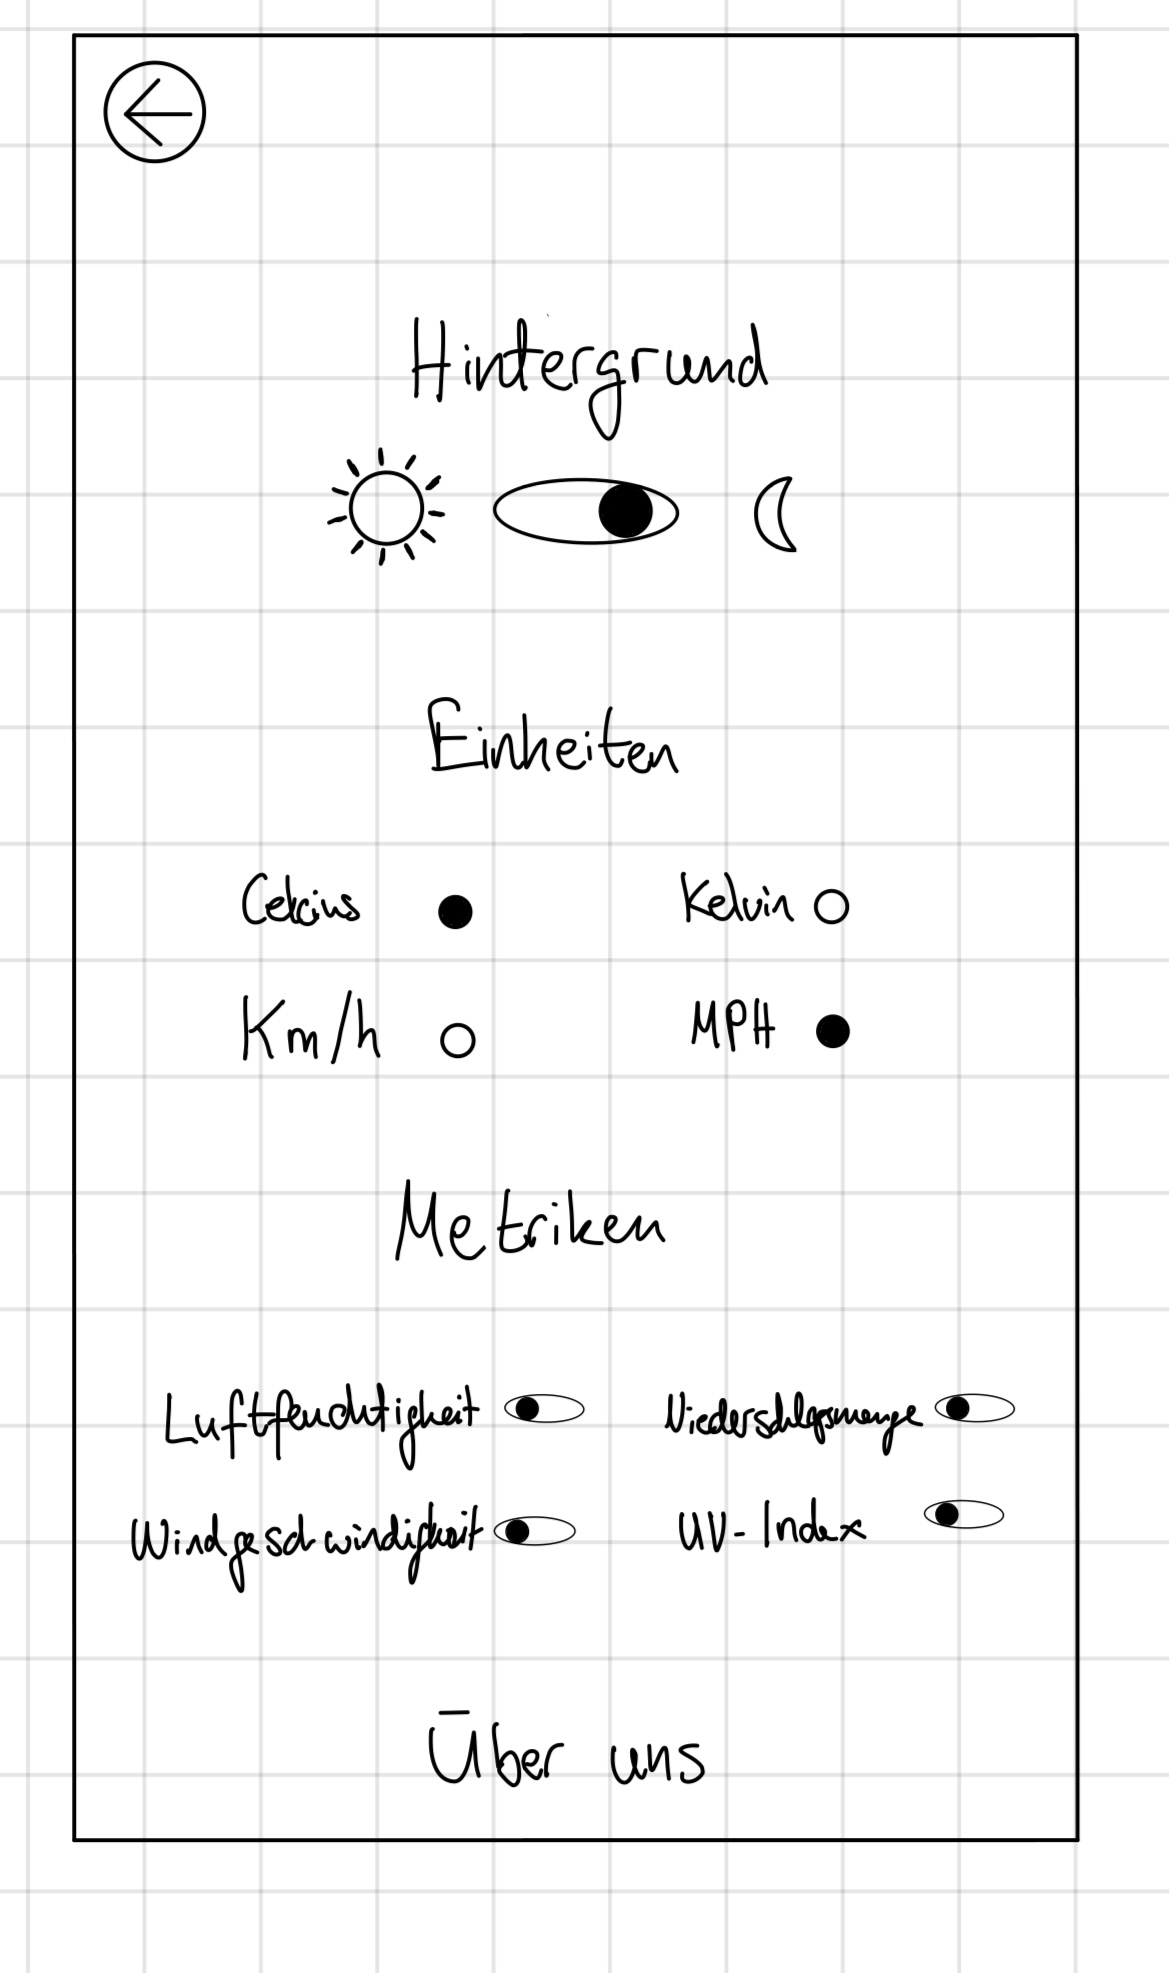 Hintergrund
Einheiten
Celcius Kelvin
Km/h MPH
Metriken
Luftfeuchtigkeit Niederschlagsmenge
Windgeschwindigkeit UV-Index
Über uns